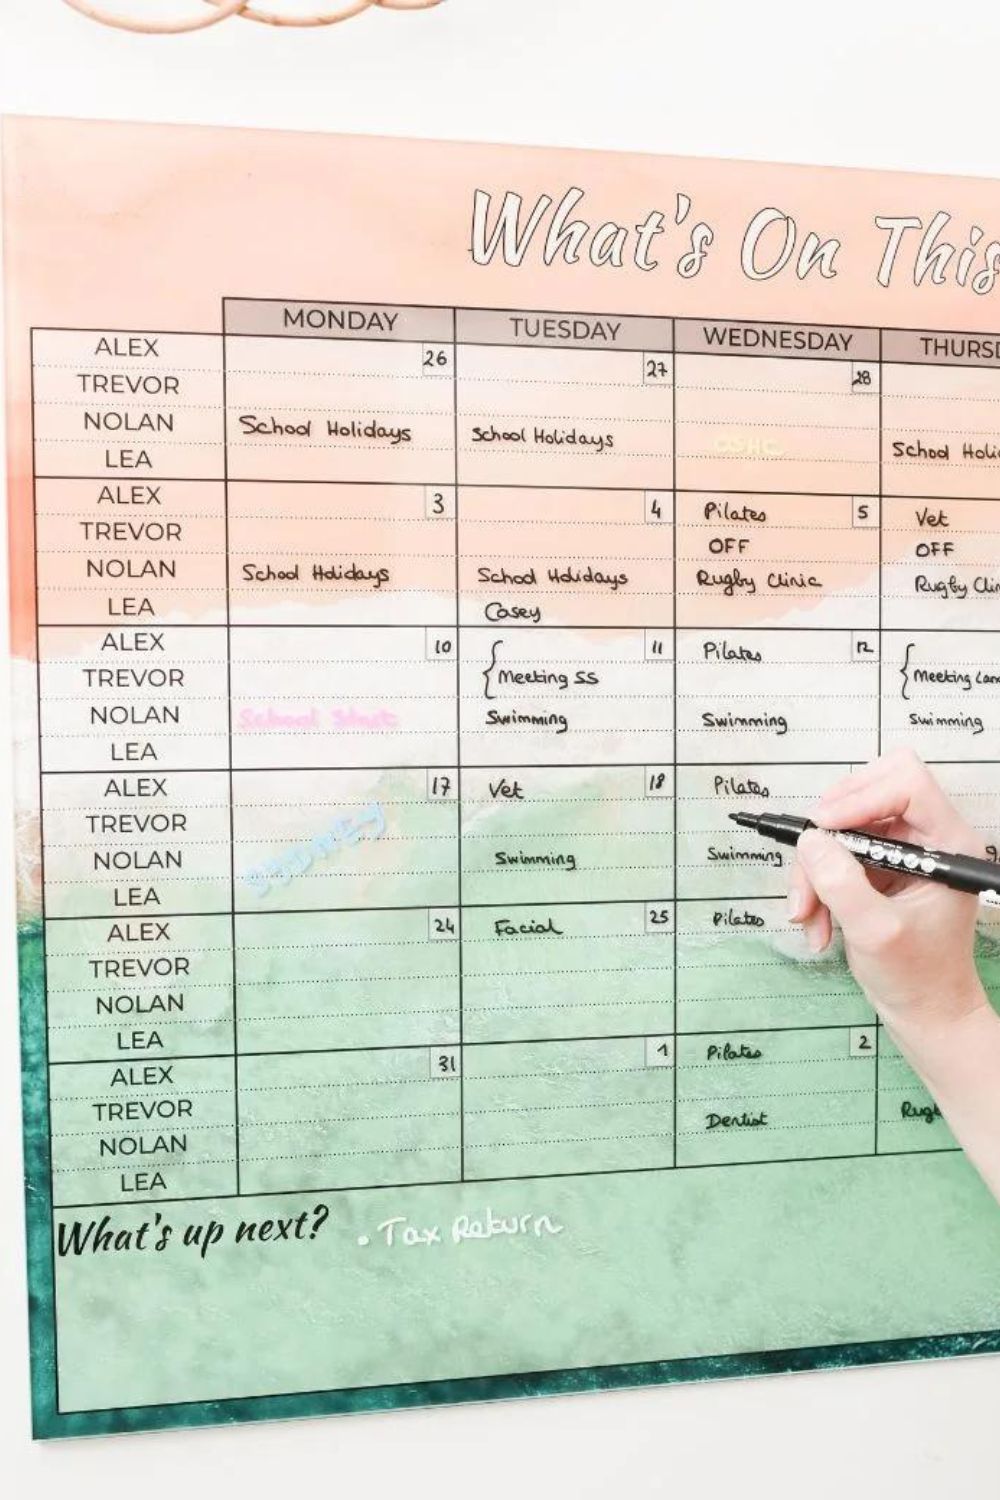 What's On This
MONDAY TUESDAY WEDNESDAY THURSD
ALEX 26 27 28
TREVOR
NOLAN School Holidays School Holidays OSHC School Holi
LEA
ALEX 3 4 Pilates 5 Vet
TREVOR OFF OFF
NOLAN School Holidays School Holidays Rugby Clinic Rugby Clin
LEA Casey
ALEX 10 11 Pilates 12
TREVOR Meeting SS Meeting
NOLAN School Start Swimming Swimming Swimming
LEA
ALEX 17 Vet 18 Pilates
TREVOR
NOLAN Swimming Swimming
LEA
ALEX 24 Facial 25 Pilates
TREVOR
NOLAN
LEA
ALEX 31 1 Pilates 2
TREVOR Dentist Rugb
NOLAN
LEA
What's up next? . Tax Return